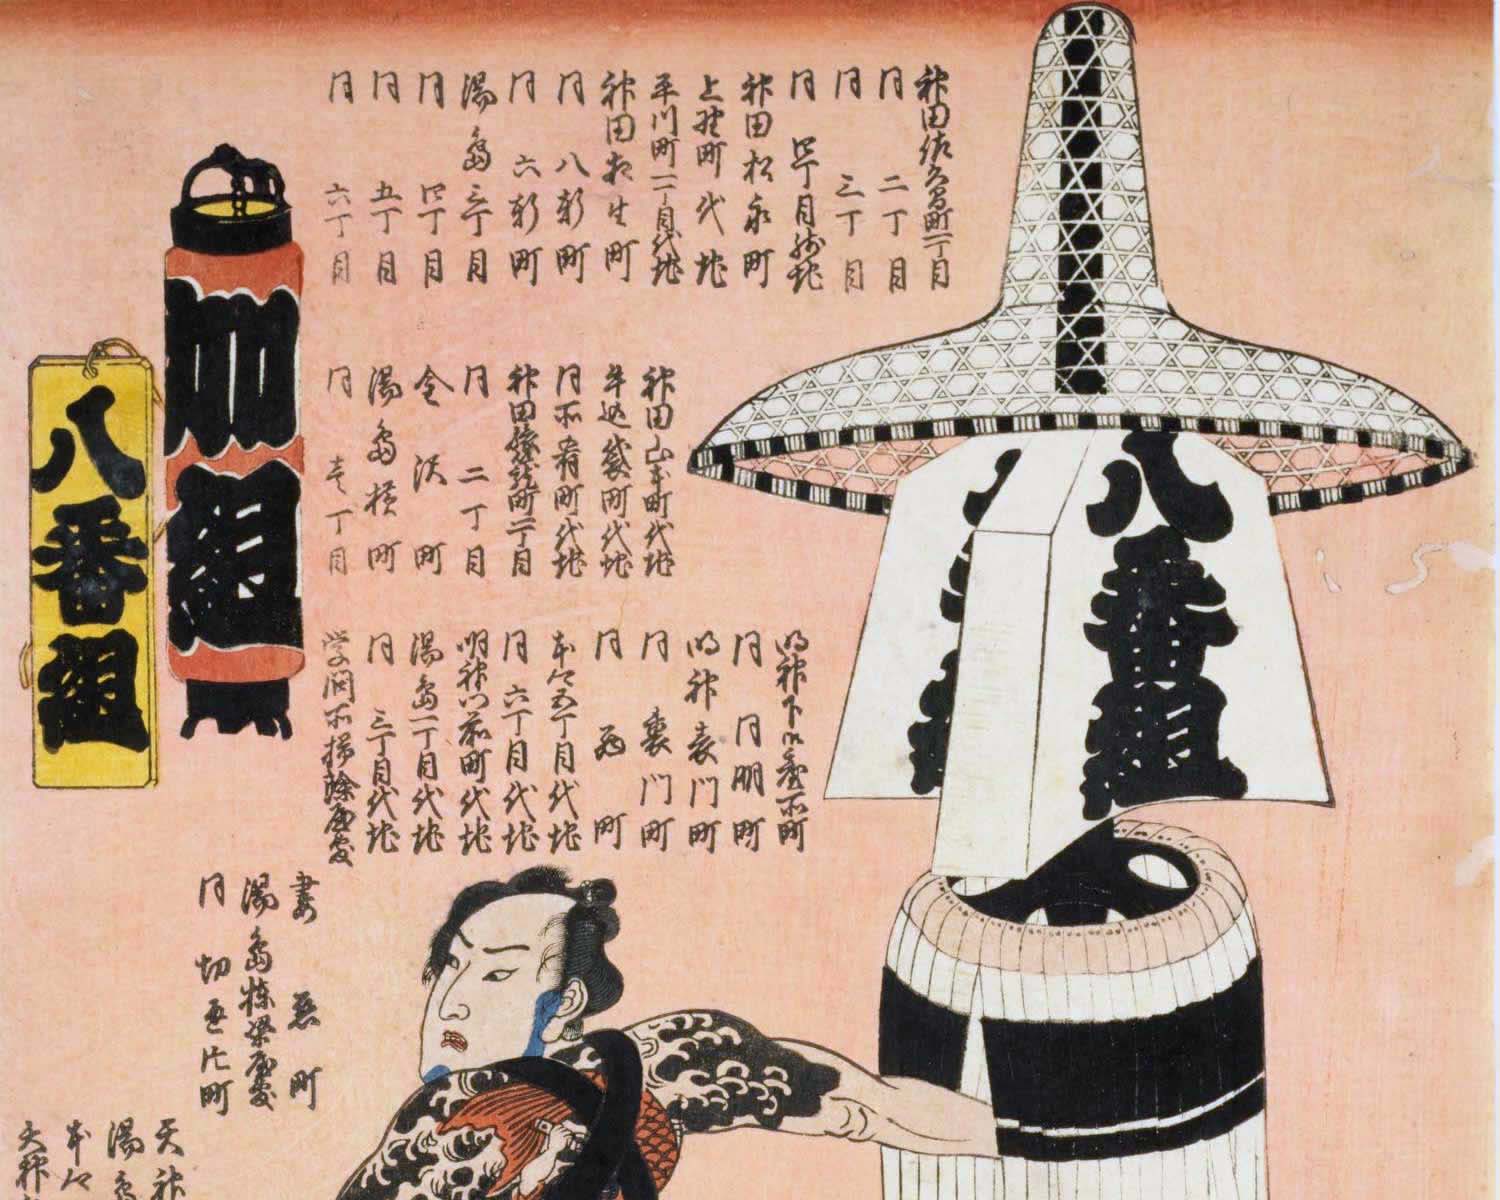 八番組
神田佐久間町一丁目
同 二丁目
同 三丁目
同 四丁目
神田松永町
上野町代地
平川町一丁目代地
神田相生町
同 八軒町
同 六軒町
湯島三丁目
同 四丁目
同 五丁目
同 六丁目
神田山本町代地
牛込袋町代地
同所肴町代地
神田旅籠町一丁目
同 二丁目
金沢町
湯島横町
同 壱丁目
明神下御台所町
同 同朋町
明神表門町
同 裏門町
同 西町
本郷五丁目代地
同 六丁目代地
明神門前町代地
湯島一丁目代地
同 三丁目代地
学問所掃除屋敷
組
八番組
妻恋町
湯島棟梁屋敷
同 切通片町
天神
湯島
本郷
天神